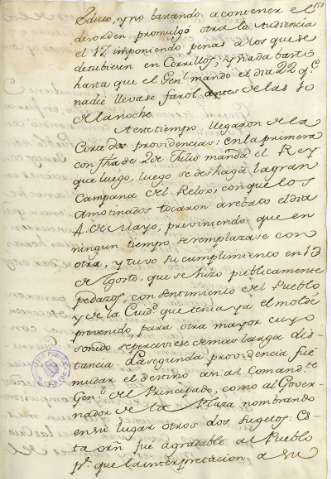 Edicto, y no bastando a contener el
desorden, promulgó otra la Audiencia
el 17 imponiendo penas a los que se
detubieren en Corrillos; y nada bastó
hasta que el Genl. mandó el dia 22 q.e
nadie llevase farol antes de las 10
de la noche.
A este tiempo llegaron de la
Corte dos providencias: en la primera
con fha de 2 de Julio manda el Rey
que luego, luego se deshaga la gran
Campana del Relox, con que los
Amotinados tocaron arrebato el dia
4 de Mayo, previniendo que en
ningun tiempo se remplazase con
otra, y tuvo su cumplimiento en 13
de Agosto, que se hizo publicamente
pedazos, con sentimiento del Pueblo
y de la Ciud.d que tenia ya el molde
prevenido para otra mayor cuyo
sonido se percibiese de mas larga dis
tancia. La segunda providencia fue
mudar el destino an al Comand.te
Gen.l del Principado, como al Gover-
nador de la Plaza nombrando
en su lugar otros dos sugetos. Es
ta orn fue agradable al Pueblo
p.r que la interpretacion a su